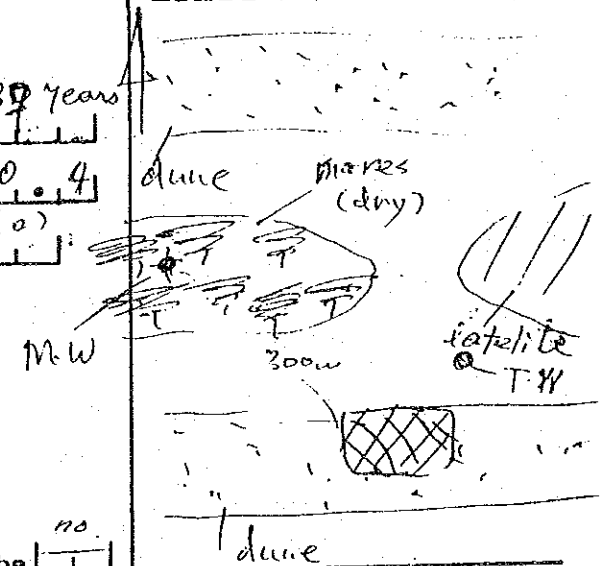 Years
0 . 4
dune
mares
(dry)
a)
T T
T T T T
M.W
300m
satelite
T.W
no.
dune